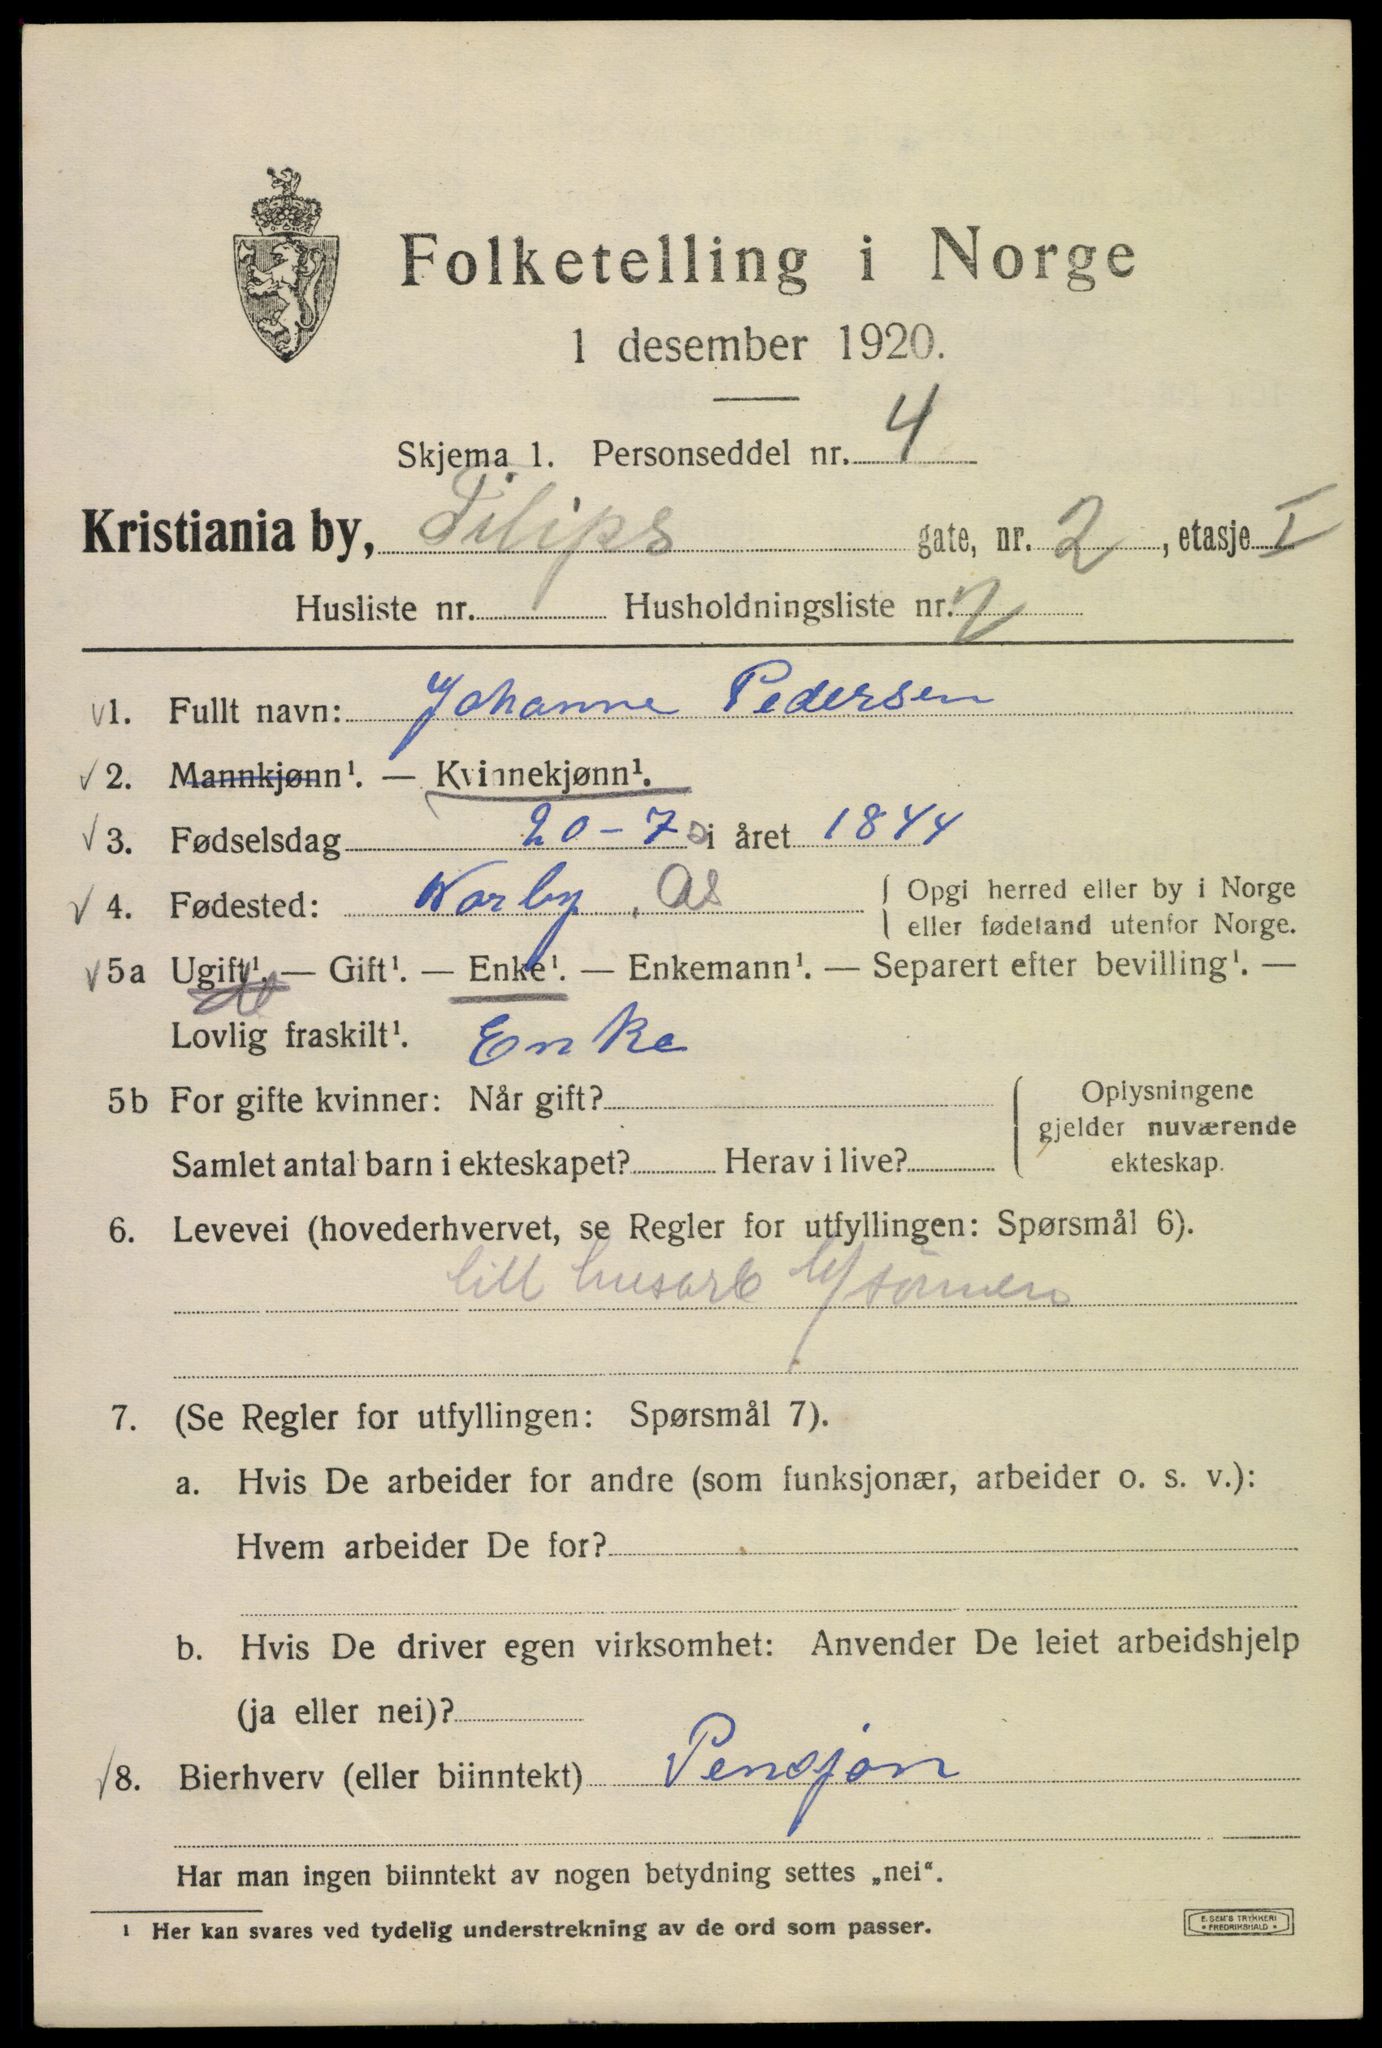 Folketelling i Norge
1 desember 1920.
Skjema 1. Personseddel nr. 4
Kristiania by, Filips gate, nr. 2, etasje I
Husliste nr. Husholdningsliste nr. 2
1. Fullt navn: Johanne Pedersen
2. Mannkjønn¹. — Kvinnekjønn¹.
3. Fødselsdag 20-7 i året 1844
4. Fødested: Norby, Ås { Opgi herred eller by i Norge
eller fødeland utenfor Norge.
5a Ugift¹. — Gift¹. — Enke¹. — Enkemann¹. — Separert efter bevilling¹. —
Lovlig fraskilt¹. Enke
5b For gifte kvinner: Når gift? { Oplysningene
gjelder nuværende
Samlet antal barn i ekteskapet? Herav i live? ekteskap.
6. Levevei (hovederhvervet, se Regler for utfyllingen: Spørsmål 6).
litt husarb
7. (Se Regler for utfyllingen: Spørsmål 7).
a. Hvis De arbeider for andre (som funksjonær, arbeider o. s. v.):
Hvem arbeider De for?
b. Hvis De driver egen virksomhet: Anvender De leiet arbeidshjelp
(ja eller nei)?
8. Bierhverv (eller biinntekt) Pensjon
Har man ingen biinntekt av nogen betydning settes „nei“.
¹ Her kan svares ved tydelig understrekning av de ord som passer.
E. SEM'S TRYKKERI
* FREDRIKSHALD *